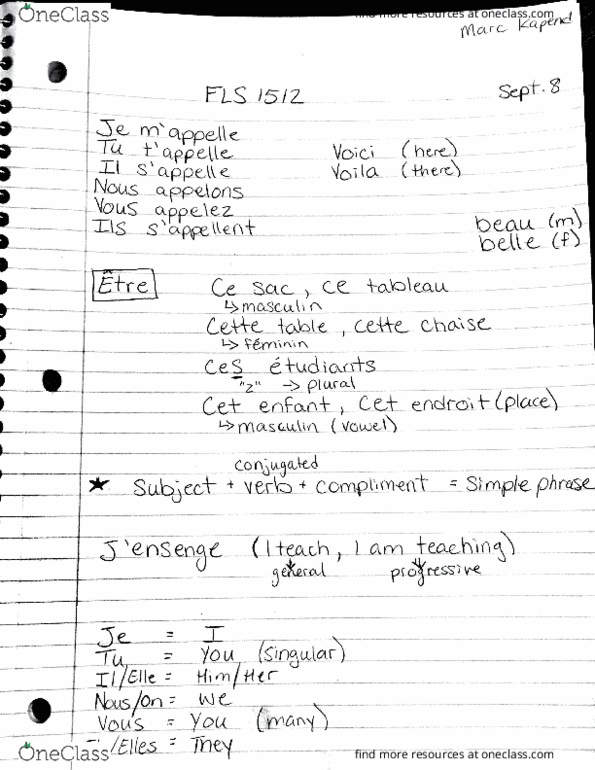 OneClass
find more resources at oneclass.com
Marc Kapend
FLS 1512
Sept. 8
Je m'appelle
Tu t'appelle
Voici (here)
Il s'appelle
Voila (there)
Nous appelons
Vous appelez
beau (m)
Ils s'appellent
belle (f)
Être
Ce sac, ce tableau
↳ masculin
Cette table, cette chaise
↳ féminin
Ces étudiants
"z" → plural
Cet enfant, Cet endroit (place)
↳ masculin (vowel)
conjugated
★ Subject + verb + compliment = Simple phrase
J'ensenge (I teach, I am teaching)
general progressive
Je = I
Tu = You (singular)
Il/Elle = Him/Her
Nous/On = We
Vous = You (many)
/Elles = They
OneClass
find more resources at oneclass.com